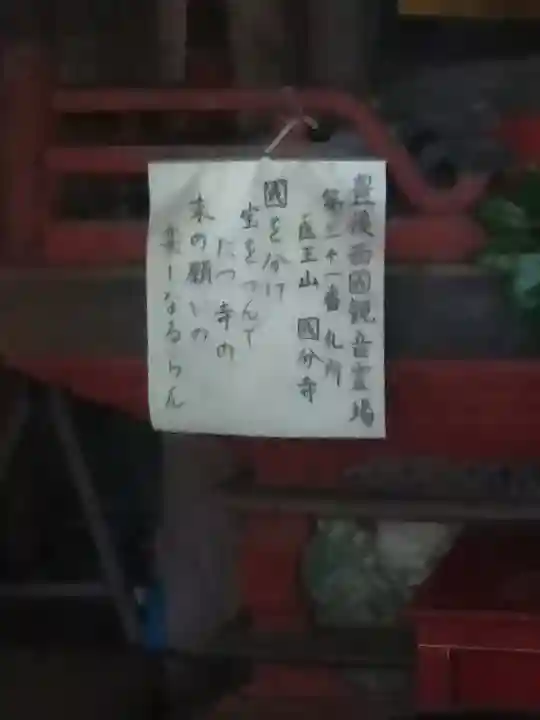 豊後西國観音霊場
第二十一番札所
医王山 國分寺
國を分け
宝をつんで
たつ寺の
末の願いの
楽しなるらん